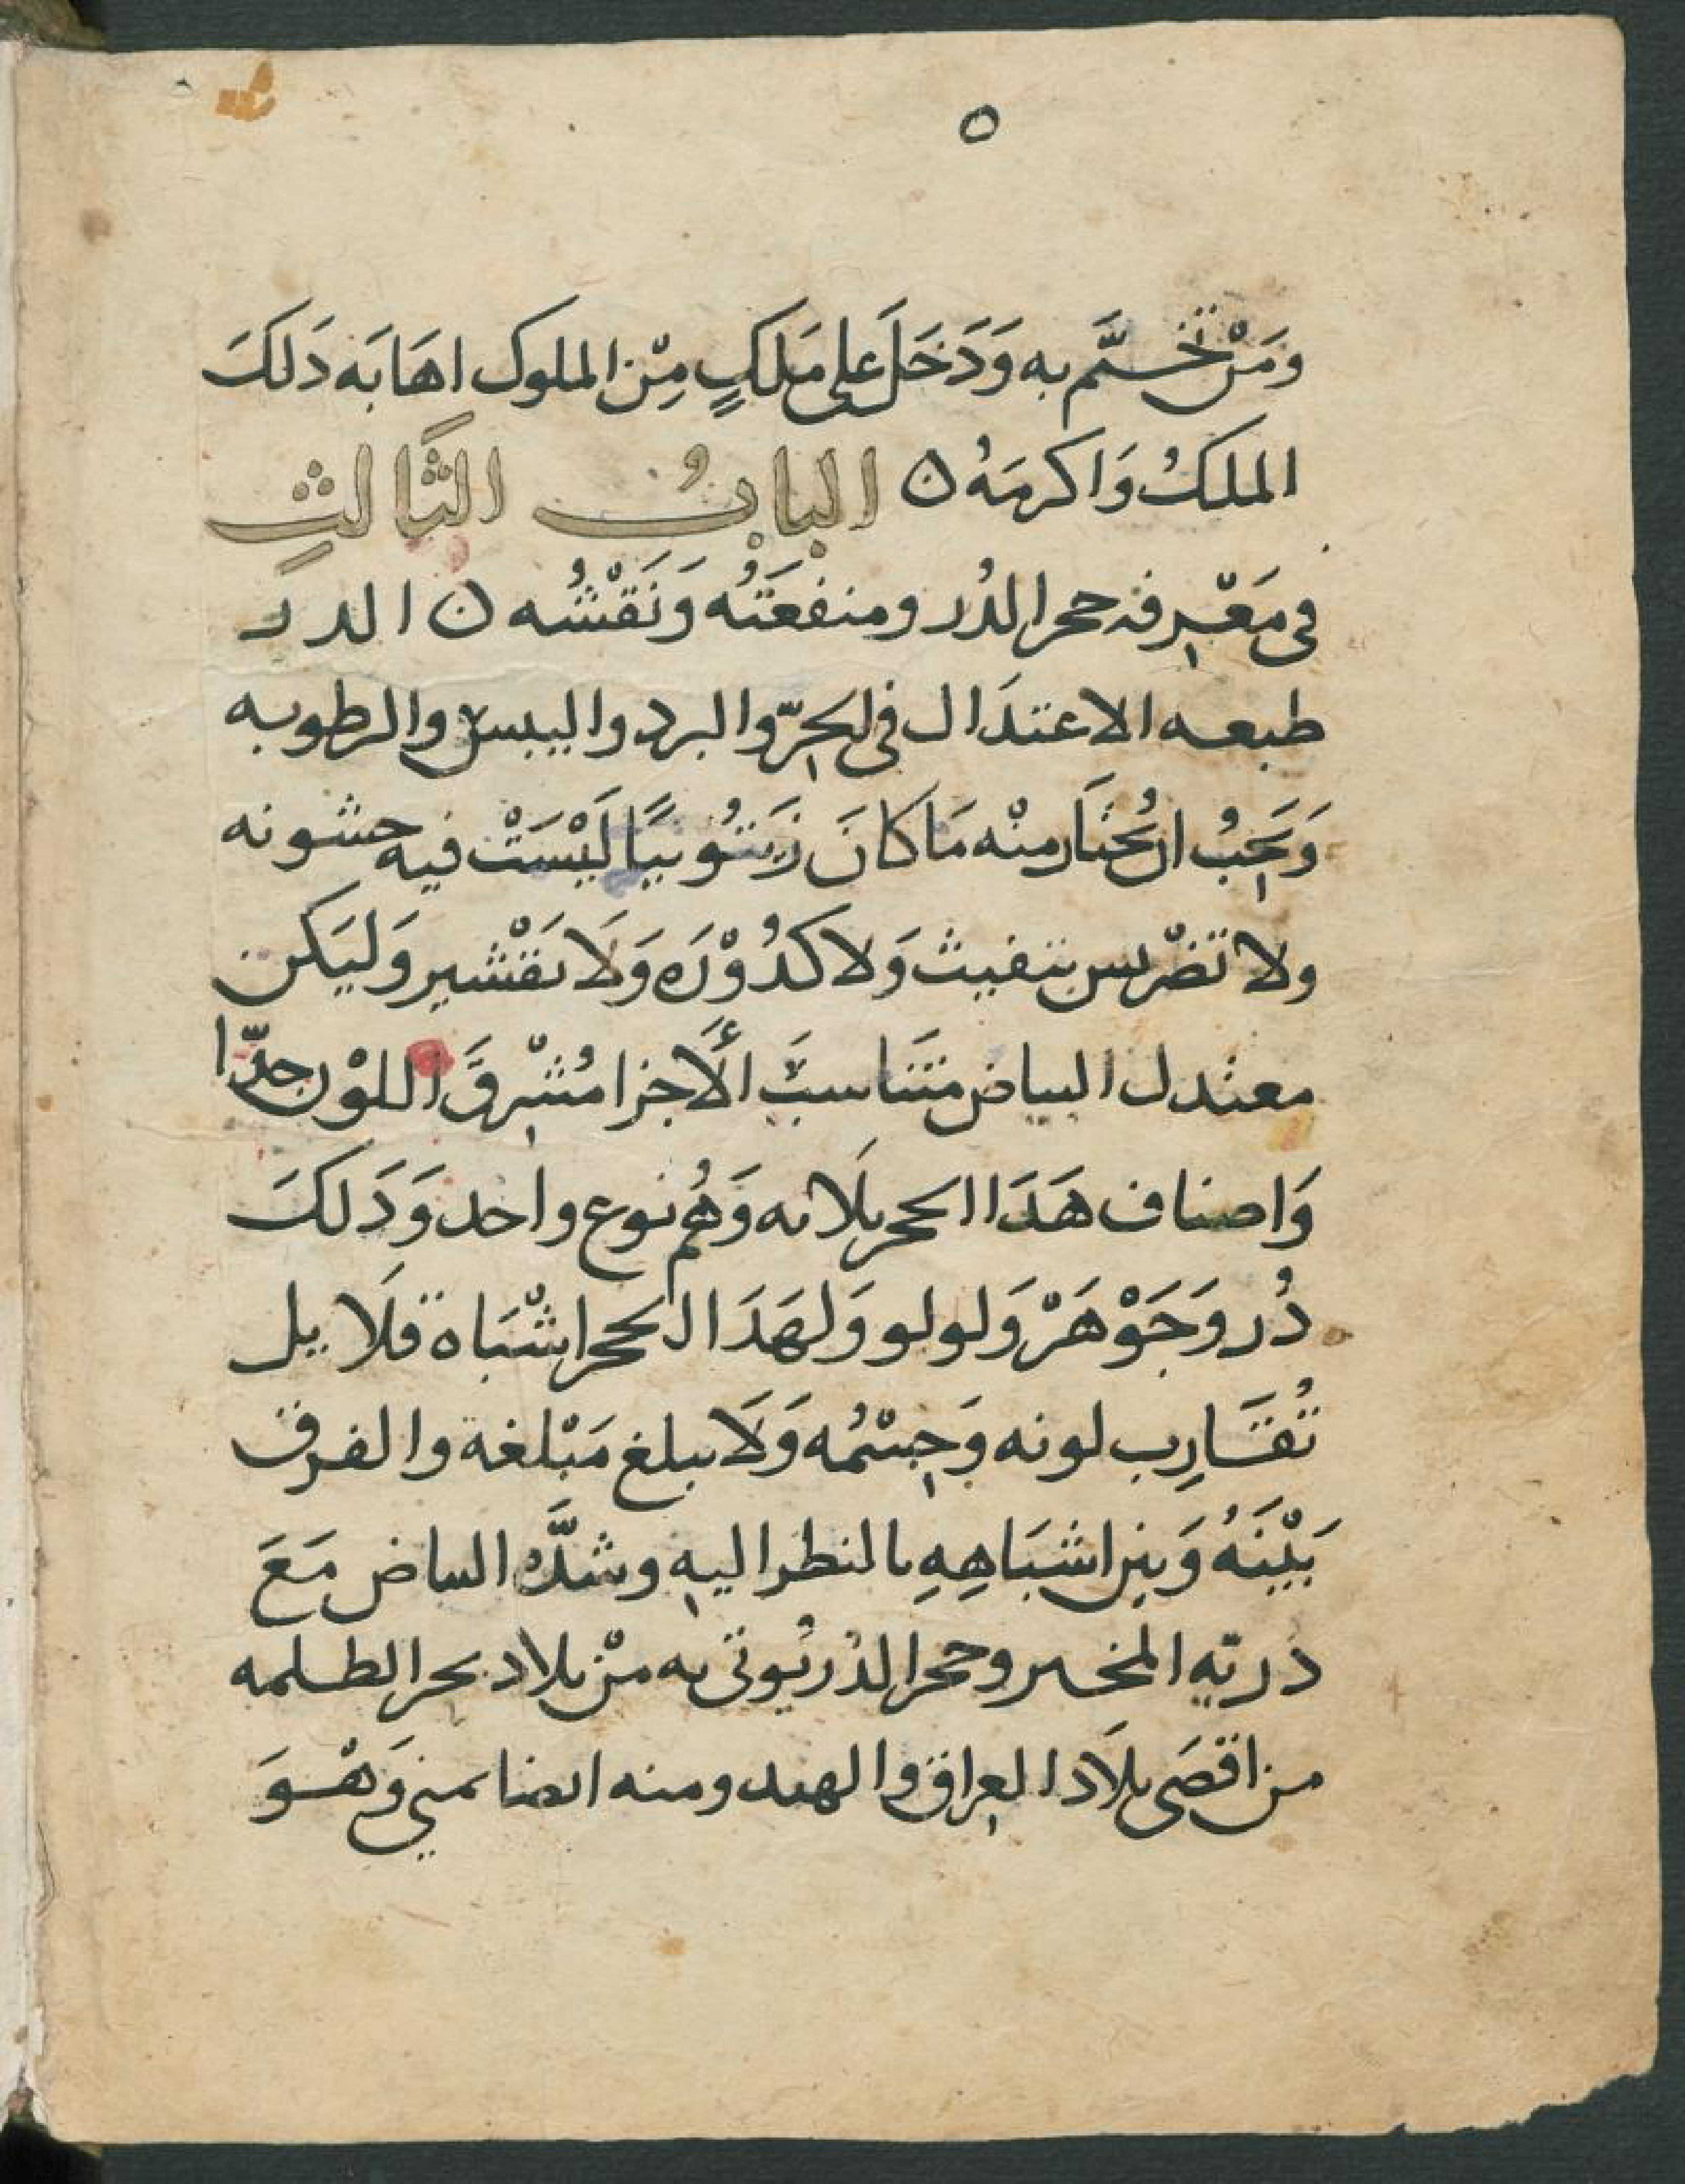 ٥
ومَنْ تختَّم به وَدَخَلَ على مَلَكٍ مِنْ الملوك اهَابَه دَلكَ
الملكُ وَاكرمَهُ ن البابُ الثَّالثِ
فى مَعْرِفه حجر الدُر ومنفعَتُه وَنَقْشُه ن الدر
طبعه الاعتدَال فى الحِرّ والبرد واليبس والرطوبه
وَيَجِبُ ان يُختَار منْه مَا كانَ زَيتُونيًا لَيْسَتْ فيه خشونه
ولا تضْريس بتفيث وَلا كدُوْرَه وَلَا تقْشير وَليَكن
معتدل البياض متَناسبَ الأَجزا مُشْرِقَ اللوْن جدّا
وَاصناف هَدَا الحجر ثلاثه وَهُم نوع واحد وَدَلكَ
دُر وَجَوْهَرْ وَلولو وَلهَدَا الحجر اشْبَاة قلَايل
تُقَارِب لونه وَجِسْمُه وَلَا يبلغ مَبْلغة والفرق
بَيْنَهُ وَبين اشبَاهِهِ بالنظر اليهِ وشدَّه البياض مَعَ
دريّه المخبر وحجر الدُر يُوتى به منْ بلاد بحر الظلمه
من اقصَى بلَاد العِراق والهند ومنه ايضا يمنى وَهْوَ